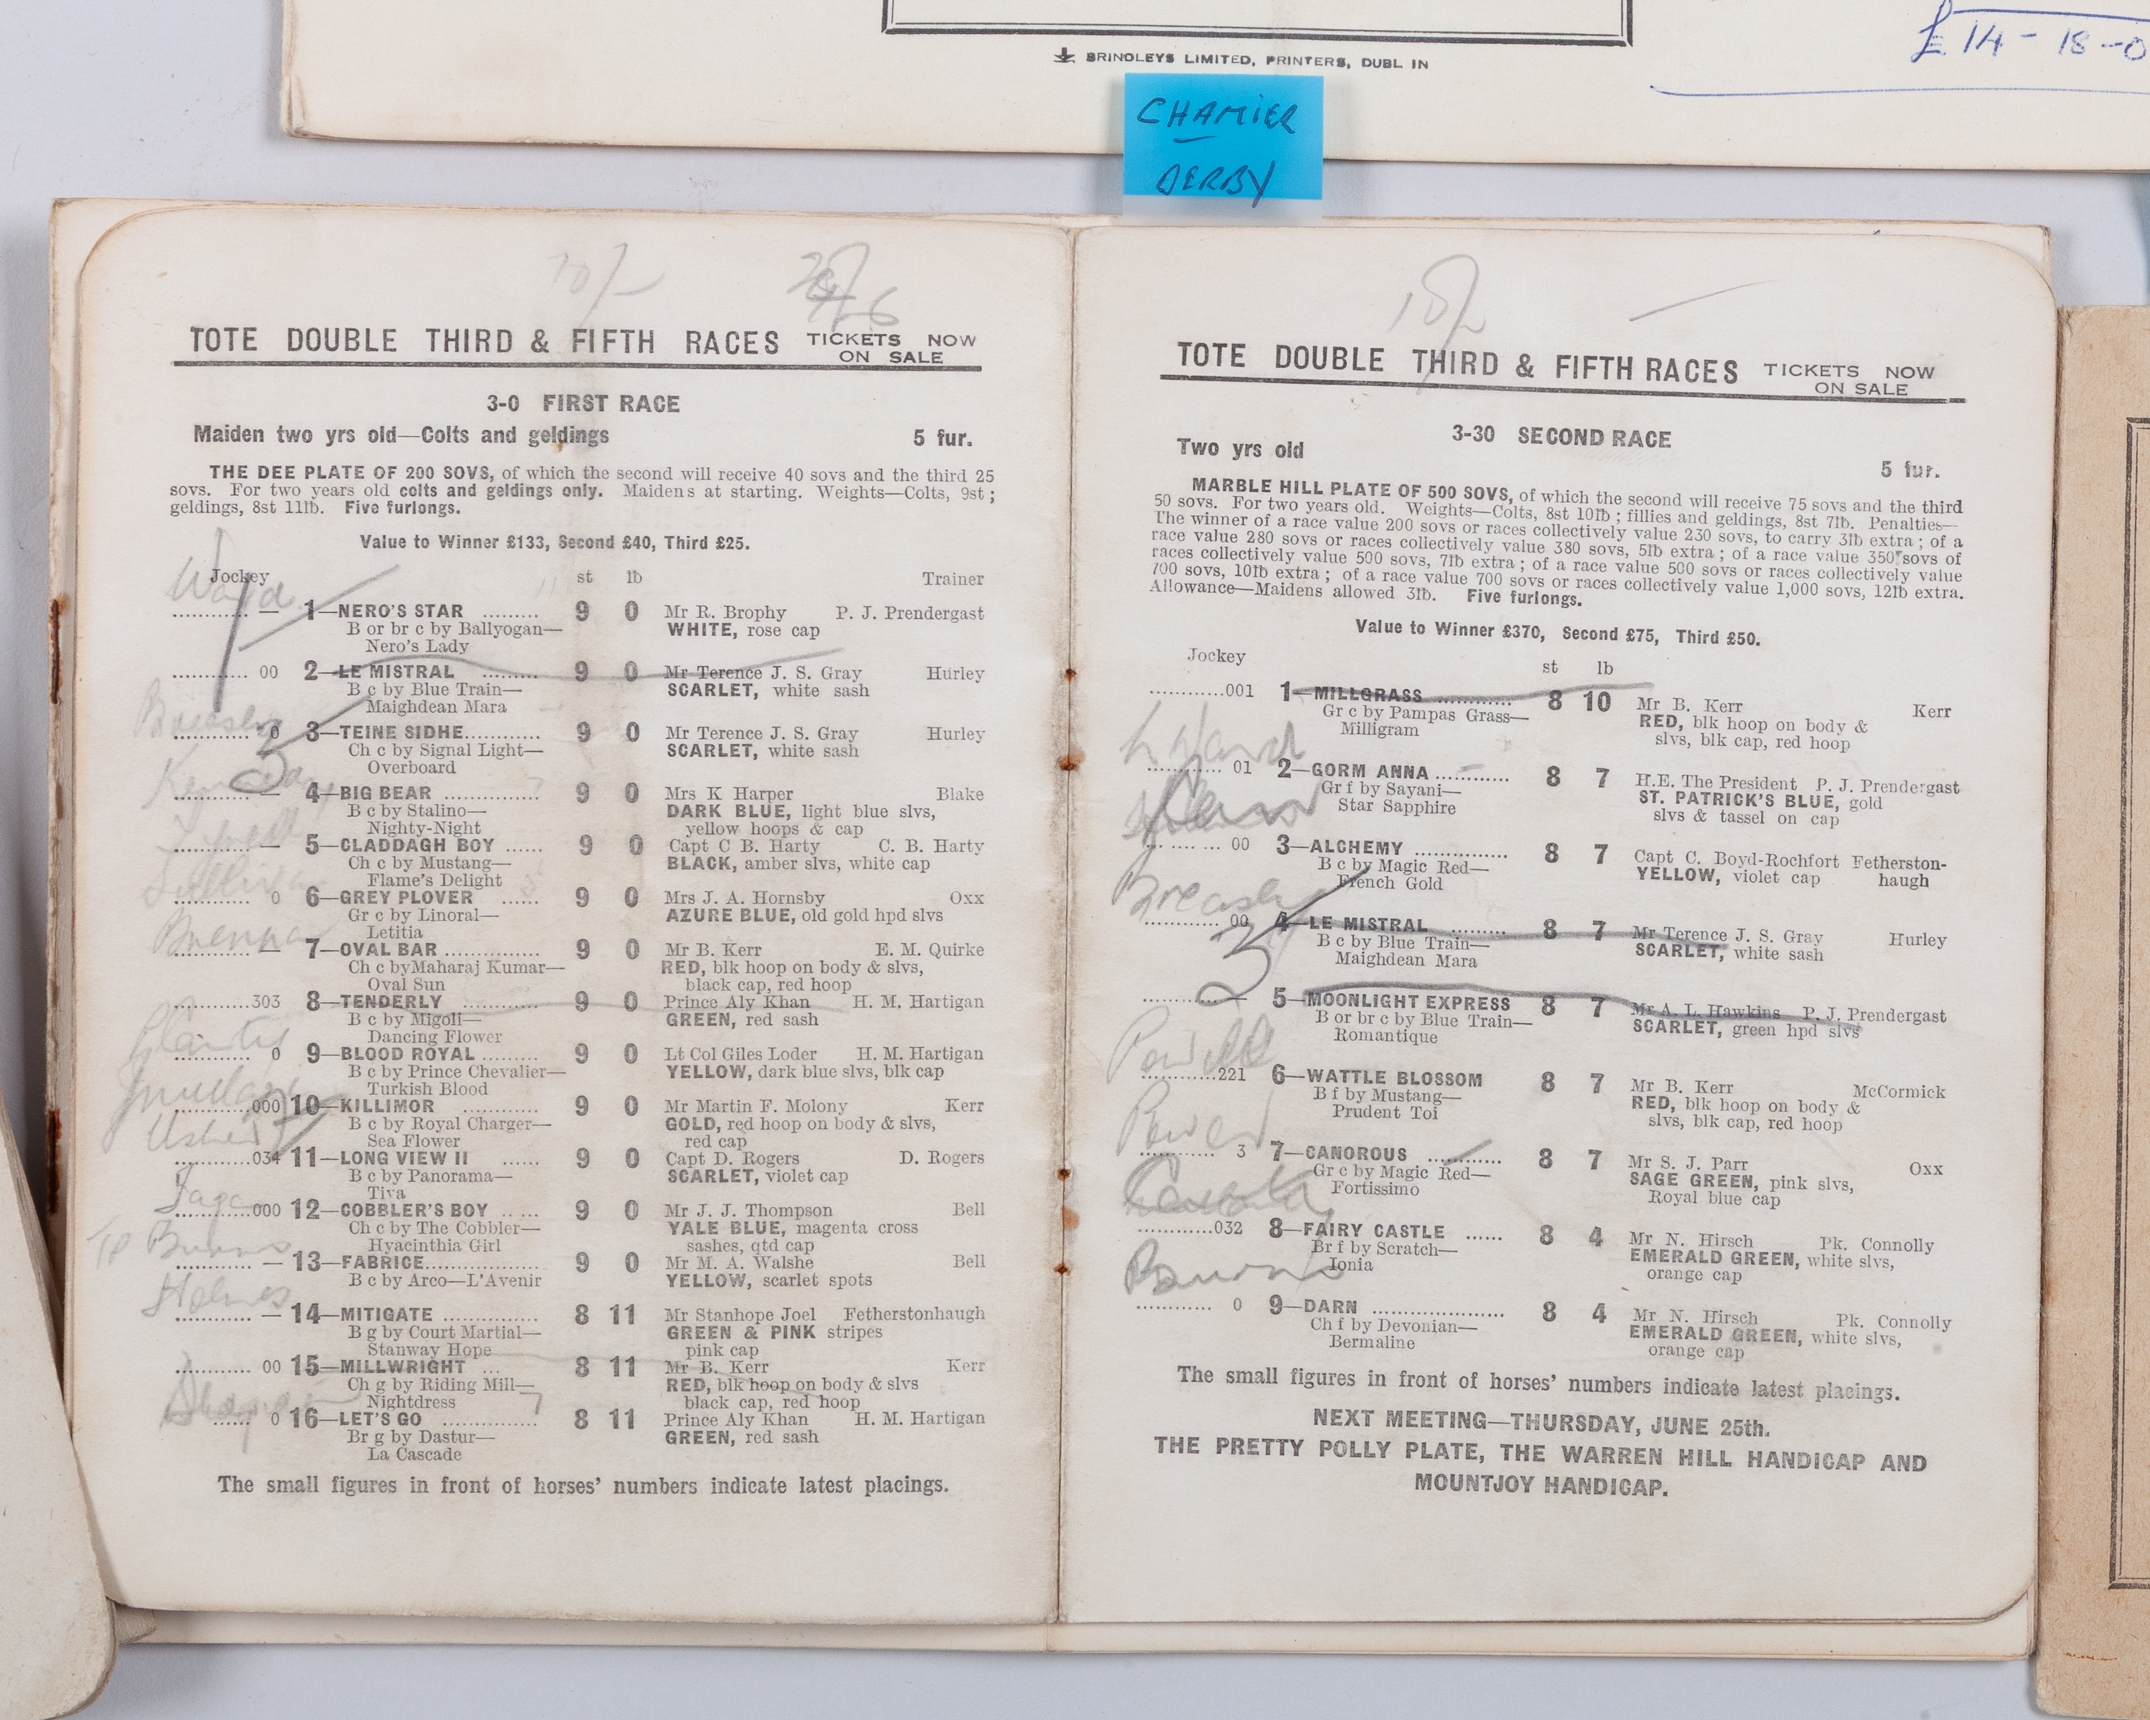 £14-18-0
BRINDLEYS LIMITED, PRINTERS, DUBL IN
CHAMIER
DERBY
10/-
TOTE DOUBLE THIRD & FIFTH RACES TICKETS NOW
ON SALE
3-0 FIRST RACE
Maiden two yrs old—Colts and geldings 5 fur.
THE DEE PLATE OF 200 SOVS, of which the second will receive 40 sovs and the third 25
sovs. For two years old colts and geldings only. Maidens at starting. Weights—Colts, 9st;
geldings, 8st 11lb. Five furlongs.
Value to Winner £133, Second £40, Third £25.
Ward
Jockey st lb Trainer
............ — 1—NERO'S STAR ......... 9 0 Mr R. Brophy P. J. Prendergast
B or br c by Ballyogan— WHITE, rose cap
Nero's Lady
............ 00 2—LE MISTRAL ......... 9 0 Mr Terence J. S. Gray Hurley
B c by Blue Train— SCARLET, white sash
Maighdean Mara
Breasley
............ 0 3—TEINE SIDHE............ 9 0 Mr Terence J. S. Gray Hurley
Ch c by Signal Light— SCARLET, white sash
Overboard
3
............ — 4—BIG BEAR ............... 9 0 Mrs K Harper Blake
B c by Stalino— DARK BLUE, light blue slvs,
Nighty-Night yellow hoops & cap
............ — 5—CLADDAGH BOY ...... 9 0 Capt C B. Harty C. B. Harty
Ch c by Mustang— BLACK, amber slvs, white cap
Flame's Delight
............ 0 6—GREY PLOVER ...... 9 0 Mrs J. A. Hornsby Oxx
Gr c by Linoral— AZURE BLUE, old gold hpd slvs
Letitia
Brennan
............ — 7—OVAL BAR ............... 9 0 Mr B. Kerr E. M. Quirke
Ch c byMaharaj Kumar— RED, blk hoop on body & slvs,
Oval Sun black cap, red hoop
............303 8—TENDERLY ............ 9 0 Prince Aly Khan H. M. Hartigan
B c by Migoli— GREEN, red sash
Dancing Flower
............ 0 9—BLOOD ROYAL ......... 9 0 Lt Col Giles Loder H. M. Hartigan
B c by Prince Chevalier— YELLOW, dark blue slvs, blk cap
Turkish Blood
............000 10—KILLIMOR ............ 9 0 Mr Martin F. Molony Kerr
B c by Royal Charger— GOLD, red hoop on body & slvs,
Sea Flower red cap
............034 11—LONG VIEW II ...... 9 0 Capt D. Rogers D. Rogers
B c by Panorama— SCARLET, violet cap
Tiva
............000 12—COBBLER'S BOY ...... 9 0 Mr J. J. Thompson Bell
Ch c by The Cobbler— YALE BLUE, magenta cross
Hyacinthia Girl sashes, qtd cap
TP Burns
............ — 13—FABRICE............... 9 0 Mr M. A. Walshe Bell
B c by Arco—L'Avenir YELLOW, scarlet spots
Holmes
............ — 14—MITIGATE ............... 8 11 Mr Stanhope Joel Fetherstonhaugh
B g by Court Martial— GREEN & PINK stripes
Stanway Hope pink cap
............ 00 15—MILLWRIGHT ... 8 11 Mr B. Kerr Kerr
Ch g by Riding Mill— RED, blk hoop on body & slvs
Nightdress black cap, red hoop
............ 0 16—LET'S GO ............... 8 11 Prince Aly Khan H. M. Hartigan
Br g by Dastur— GREEN, red sash
La Cascade
The small figures in front of horses' numbers indicate latest placings.
10/-
TOTE DOUBLE THIRD & FIFTH RACES TICKETS NOW
ON SALE
3-30 SECOND RACE
Two yrs old 5 fur.
MARBLE HILL PLATE OF 500 SOVS, of which the second will receive 75 sovs and the third
50 sovs. For two years old. Weights—Colts, 8st 10lb; fillies and geldings, 8st 7lb. Penalties—
The winner of a race value 200 sovs or races collectively value 230 sovs, to carry 3lb extra; of a
race value 280 sovs or races collectively value 380 sovs, 5lb extra; of a race value 350 sovs of
races collectively value 500 sovs, 7lb extra; of a race value 500 sovs or races collectively value
700 sovs, 10lb extra; of a race value 700 sovs or races collectively value 1,000 sovs, 12lb extra.
Allowance—Maidens allowed 3lb. Five furlongs.
Value to Winner £370, Second £75, Third £50.
Jockey st lb
............001 1—MILLGRASS ............ 8 10 Mr B. Kerr Kerr
Gr c by Pampas Grass— RED, blk hoop on body &
Milligram slvs, blk cap, red hoop
L Ward
............ 01 2—GORM ANNA ............ 8 7 H.E. The President P. J. Prendergast
Gr f by Sayani— ST. PATRICK'S BLUE, gold
Star Sapphire slvs & tassel on cap
............ 00 3—ALCHEMY ............... 8 7 Capt C. Boyd-Rochfort Fetherston-
B c by Magic Red— YELLOW, violet cap haugh
French Gold
Breasley
............ 00 4—LE MISTRAL ......... 8 7 Mr Terence J. S. Gray Hurley
B c by Blue Train— SCARLET, white sash
Maighdean Mara
3
............ — 5—MOONLIGHT EXPRESS 8 7 Mr A. L. Hawkins P. J. Prendergast
B or br c by Blue Train— SCARLET, green hpd slvs
Romantique
Powell
............221 6—WATTLE BLOSSOM 8 7 Mr B. Kerr McCormick
B f by Mustang— RED, blk hoop on body &
Prudent Toi slvs, blk cap, red hoop
Power
............ 3 7—CANOROUS ............ 8 7 Mr S. J. Parr Oxx
Gr c by Magic Red— SAGE GREEN, pink slvs,
Fortissimo Royal blue cap
............032 8—FAIRY CASTLE ...... 8 4 Mr N. Hirsch Pk. Connolly
Br f by Scratch— EMERALD GREEN, white slvs,
Ionia orange cap
Burns
............ 0 9—DARN ..................... 8 4 Mr N. Hirsch Pk. Connolly
Ch f by Devonian— EMERALD GREEN, white slvs,
Bermaline orange cap
The small figures in front of horses' numbers indicate latest placings.
NEXT MEETING—THURSDAY, JUNE 25th.
THE PRETTY POLLY PLATE, THE WARREN HILL HANDICAP AND
MOUNTJOY HANDICAP.